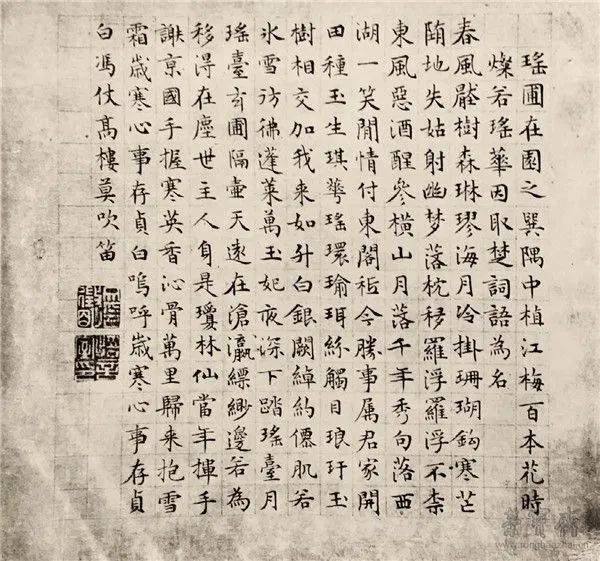 瑤圃在園之巽隅中植江梅百本花時
燦若瑤華因取楚詞語為名
春風壓樹森琳璆海月冷掛珊瑚鈎寒芒
隕地失姑射幽梦落枕移羅浮羅浮不柰
東風惡酒醒參橫山月落千年秀句落西
湖一笑閒情付東閣秪今勝事属君家開
田種玉生琪華瑤環瑜珥絲觸目琅玕玉
樹相交加我来如升白銀闕綽約僊肌若
氷雪彷彿蓬萊萬玉妃夜深下踏瑤臺月
瑤臺玄圃隔壷天遠在滄瀛縹緲邊若為
移得在塵世主人身是瓊林仙當年揮手
謝京國手握寒英香沁骨萬里歸来抱雪
霜歲寒心事存貞白嗚呼歲寒心事存貞
白馮仗髙樓莫吹笛
www.rongbaozhai.cn